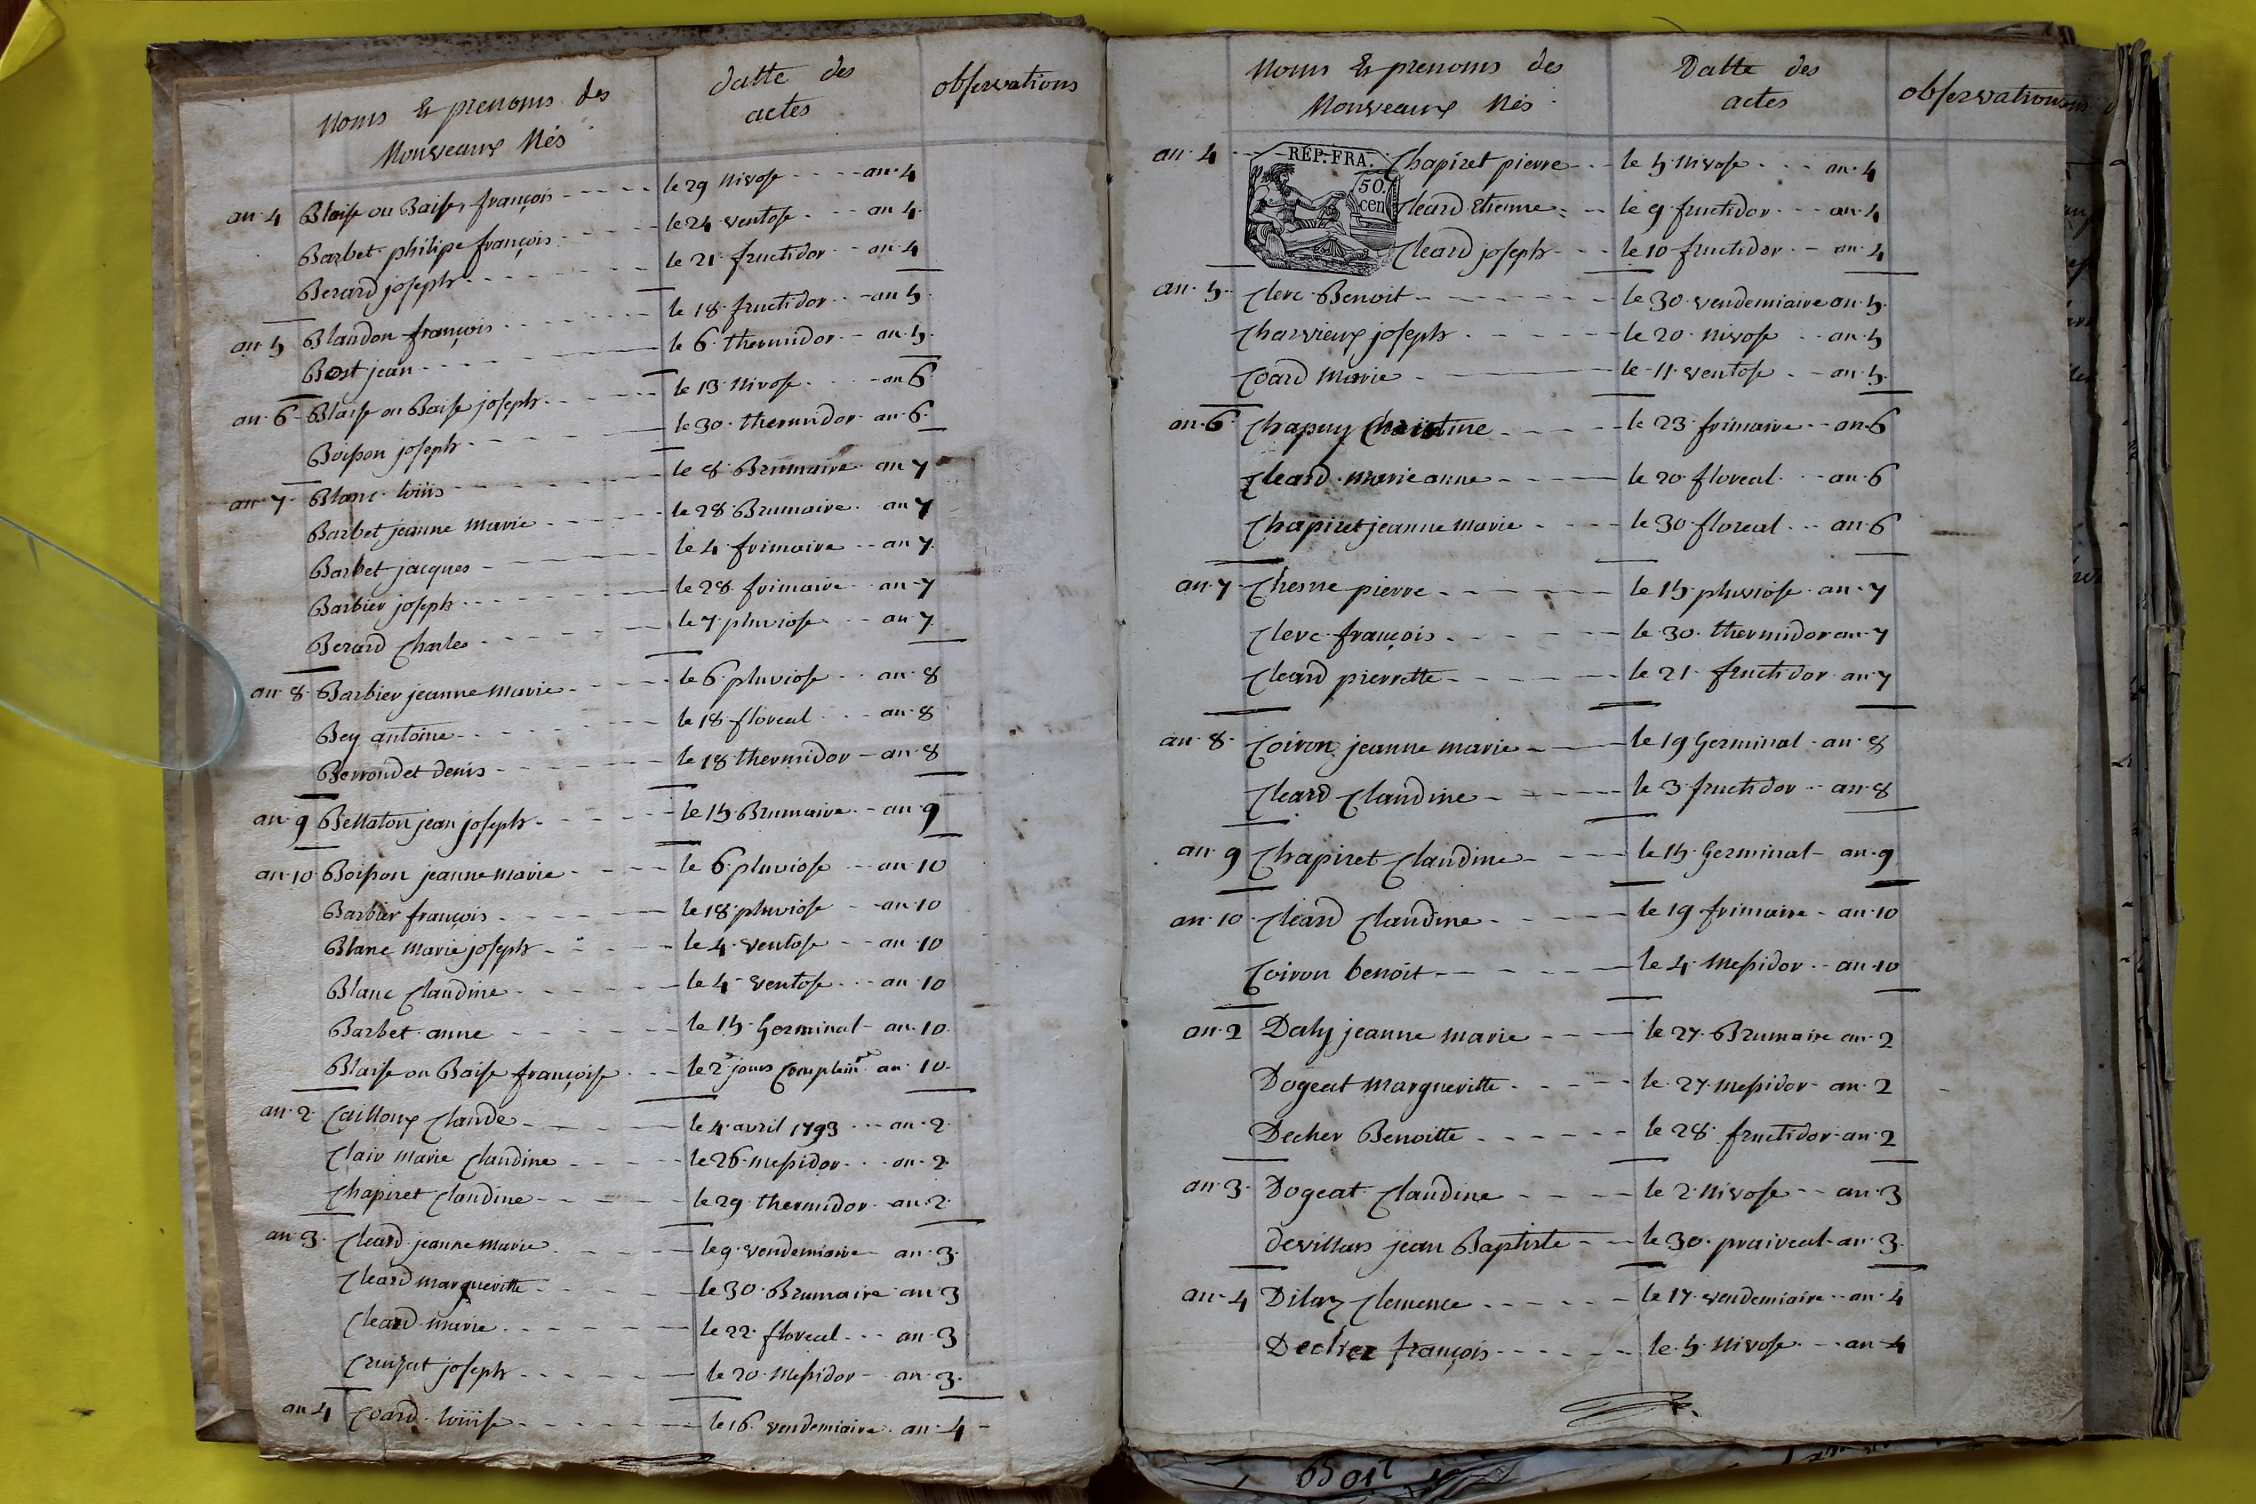 Noms & prenoms des
Nouveaux Nés
datte des
actes
observations
an 4 Blaise ou Baise, françois le 29 Nivose an 4
Barbet philipe françois le 24 ventose an 4
Berard joseph le 21 fructidor an 4
an 5 Blandon françois le 18 fructidor an 5
Bost jean le 6 thermidor an 5
an 6 Blaise ou Baise joseph le 13 Nivose an 6
Boisson joseph le 30 thermidor an 6
an 7 Blanc louis le 8 Brumaire an 7
Barbet jeanne marie le 28 Brumaire an 7
Barbet jacques le 4 frimaire an 7
Barbier joseph le 28 frimaire an 7
Berard Charles le 7 pluviose an 7
an 8 Barbier jeanne marie le 6 pluviose an 8
Bey antoine le 18 floreal an 8
Berrondet denis le 18 thermidor an 8
an 9 Bellaton jean joseph le 15 Brumaire an 9
an 10 Boisson jeanne marie le 6 pluviose an 10
Barbier françois le 18 pluviose an 10
Blanc marie joseph le 4 ventose an 10
Blanc Claudine le 4 ventose an 10
Barbet anne le 15 Germinal an 10
Blaise ou Baise françoise le 2e jours Complem.re an 10
an 2 Cailloux Claude le 4 avril 1793 an 2
Clair marie Claudine le 26 messidor an 2
Chapiret Claudine le 29 thermidor an 2
an 3 Cleard jeanne marie le 9 vendemiaire an 3
Cleard margueritte le 30 Brumaire an 3
Cleard marie le 22 floreal an 3
Cruizat joseph le 20 Messidor an 3
an 4 Coard louise le 16 vendemiaire an 4
Noms & prenoms des
Nouveaux Nés
Datte des
actes
observations
RÉP. FRA.
50.
cen
an 4 Chapiret pierre le 5 Nivose an 4
Cleard Etienne le 9 fructidor an 4
Cleard joseph le 10 fructidor an 4
an 5 Clerc Benoit le 30 vendemiaire an 5
Charvieux joseph le 20 Nivose an 5
Coard Marie le 11 ventose an 5
an 6 Chapuy Christine le 23 frimaire an 6
Cleard marie anne le 20 floreal an 6
Chapiret jeanne marie le 30 floreal an 6
an 7 Chesne pierre le 15 pluviose an 7
Clerc françois le 30 thermidor an 7
Cleard pierrette le 21 fructidor an 7
an 8 Coiron jeanne marie le 19 Germinal an 8
Cleard Claudine le 3 fructidor an 8
an 9 Chapiret Claudine le 15 Germinal an 9
an 10 Cleard Claudine le 19 frimaire an 10
Coiron benoit le 4 Messidor an 10
an 2 Daly jeanne marie le 27 Brumaire an 2
Dogeat Margueritte le 27 Messidor an 2
Decher Benoitte le 28 fructidor an 2
an 3 Dogeat Claudine le 2 Nivose an 3
devillars jean Baptiste le 30 praireal an 3
an 4 Dilaz Clemence le 17 vendemiaire an 4
Decher françois le 5 Nivose an 4